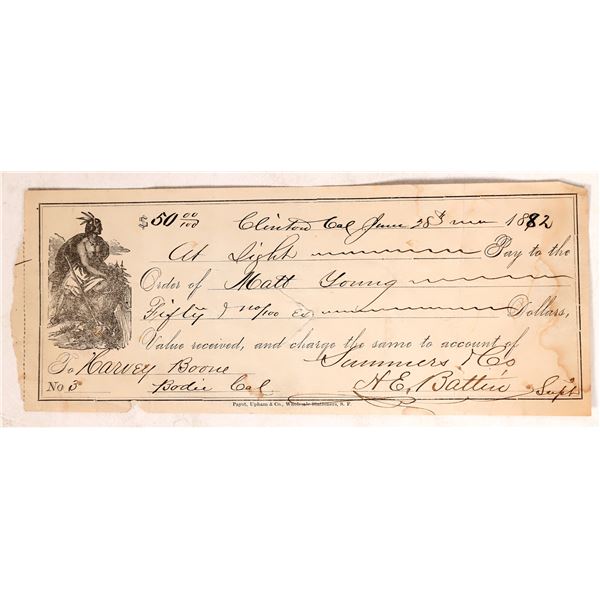 $50 00/100 Clinton Cal June 28th 1882
At Sight Pay to the
Order of Matt Young
Fifty & no/100 Dollars,
Value received, and charge the same to account of
To Harvey Boone Summers & Co
No 3 Bodie Cal H.E. Batten Supt
Payot, Upham & Co., Wholesale Stationers, S. F.